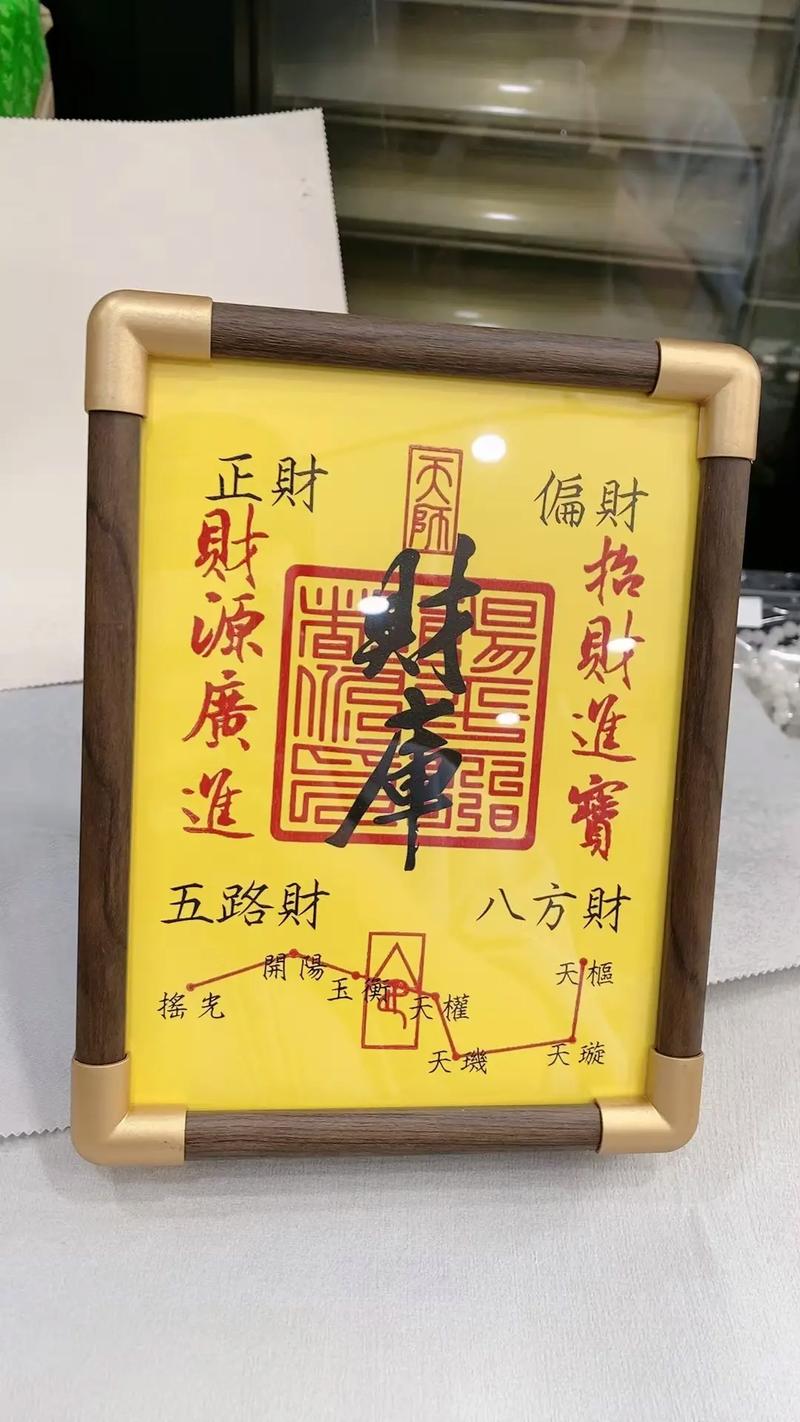 天師
正財
偏財
財源廣進
財庫
招財進寶
五路財
八方財
搖光
開陽
玉衡
天權
天璣
天璇
天樞